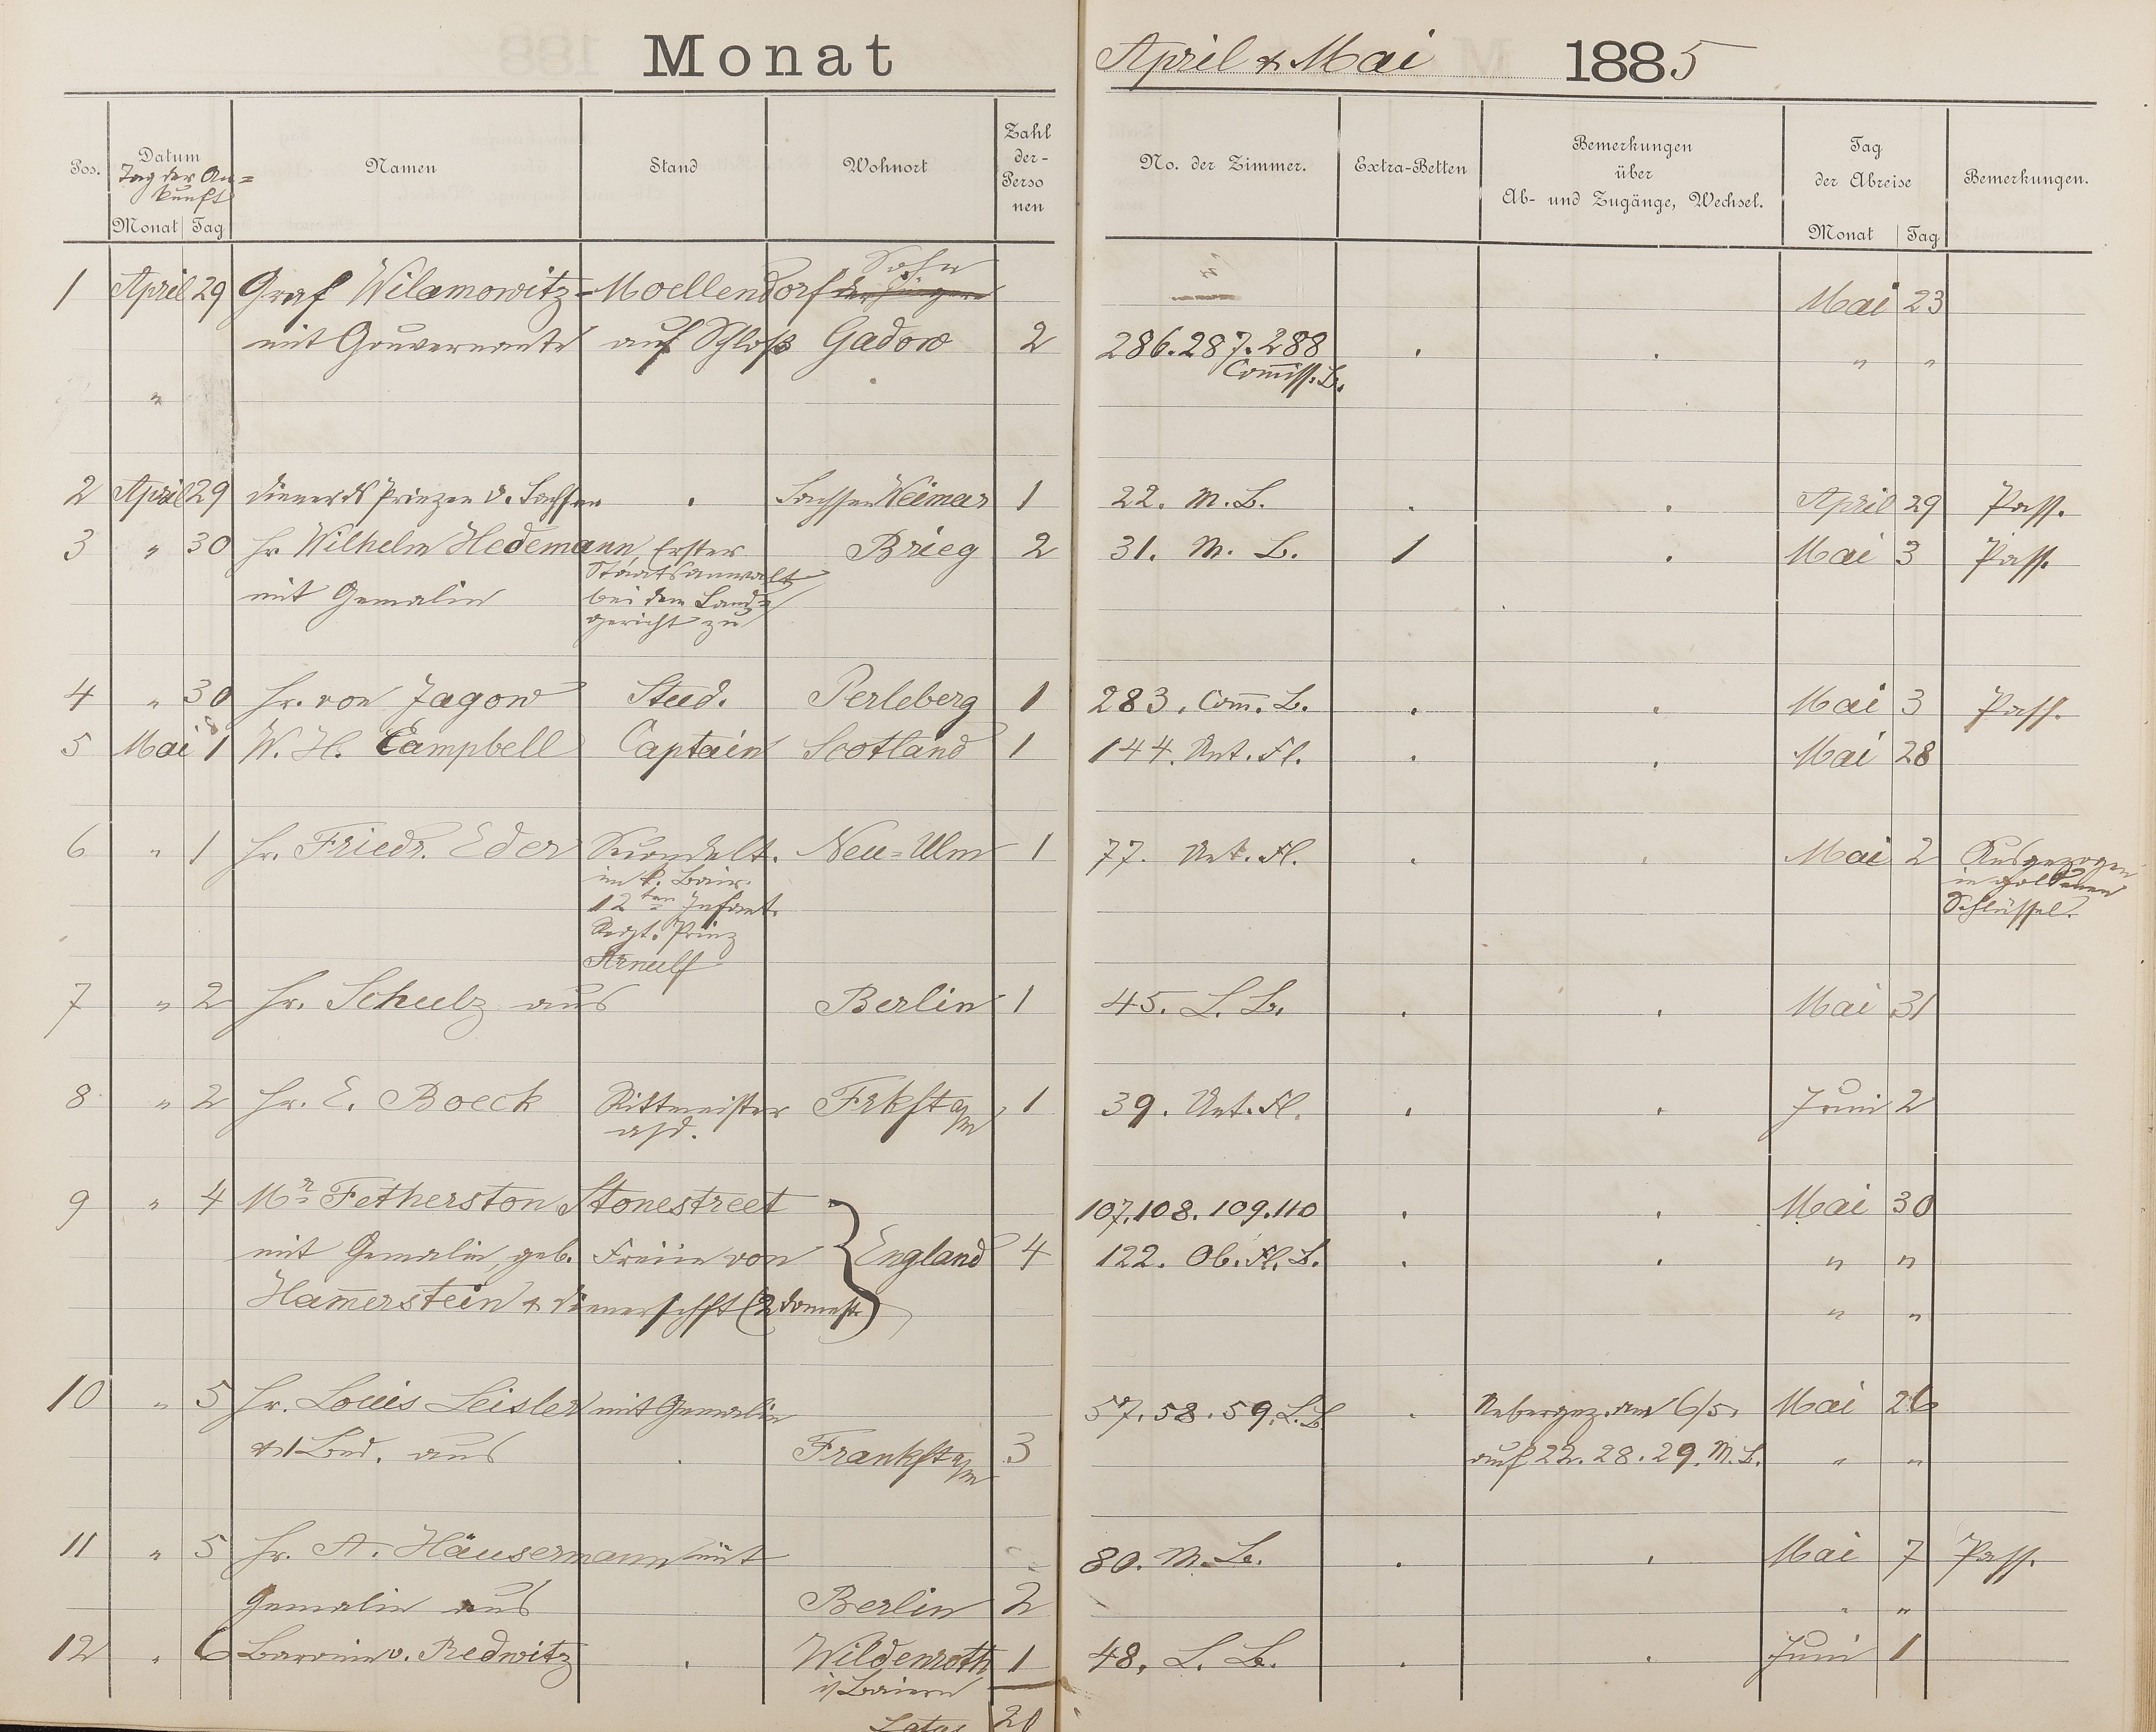 Monat April & Mai 1885
Pos. Datum Namen Stand Wohnort Zahl der- Perso nen No. der Zimmer. Extra-Betten Bemerkungen über Ab- und Zugänge, Wechsel. Tag der Abreise Bemerkungen.
Tag der An=
kunft
Monat Tag Monat Tag
1 April 29 Graf Wilamowitz-Moellendorf Sohn Mai 23
mit Gouvernante auf Schloß Gadow 2 286. 287. 288 . . " "
Commiss. B.
"
2 April 29 Diener ds Prinzen v. Sachsen . Sachsen Weimar 1 22. M. B. . . April 29 Pass.
3 " 30 Hr. Wilhelm Hedemann, Erster Brieg 2 31. M. B. 1 . Mai 3 Pass.
Staatsanwalt
mit Gemalin bei dem Land=
gericht zu
4 " 30 Hr. von Jagow Stud. Perleberg 1 283. Com̄. B. . . Mai 3 Pass.
5 Mai 1 W. H. Campbell Captain Scotland 1 144. Unt. Fl. . . Mai 28
6 " 1 Hr. Friedr. Eder Secondelt. Neu=Ulm 1 77. Unt. Fl. . . Mai 2 Ausgezogen
im k. Bair. in goldenen
12ten Infant. Schlüssel.
Regt. Prinz
Arnulf
7 " 2 Hr. Schulz aus Berlin 1 45. L. B. . . Mai 31
8 " 2 Hr. E. Boeck Rittmeister Frkft a/m 1 39. Unt. Fl. . . Juni 2
a/d.
9 " 4 Mr. Fetherston Stonestreet 107. 108. 109. 110 . . Mai 30
mit Gemalin, geb. Freiin von England 4 122. Ob. Fl. B. . . " "
Ham̄erstein & Dienerschft (2 domest.) " "
10 " 5 Hr. Louis Leisler mit Gemalin 57. 58. 59. L. B. . Uebergez. am 6/5. Mai 26
& 1 Bed. aus . Frankft a/m 3 auf 22. 28. 29. M. B. " "
11 " 5 Hr. A. Häusermann mit 80. M. B. . . Mai 7 Pass.
Gemalin aus . Berlin 2 " "
12 " 6 Baronin v. Redwitz . Wildenroth 1 48. L. B. . . Juni 1
i/ Baiern
Latus 20